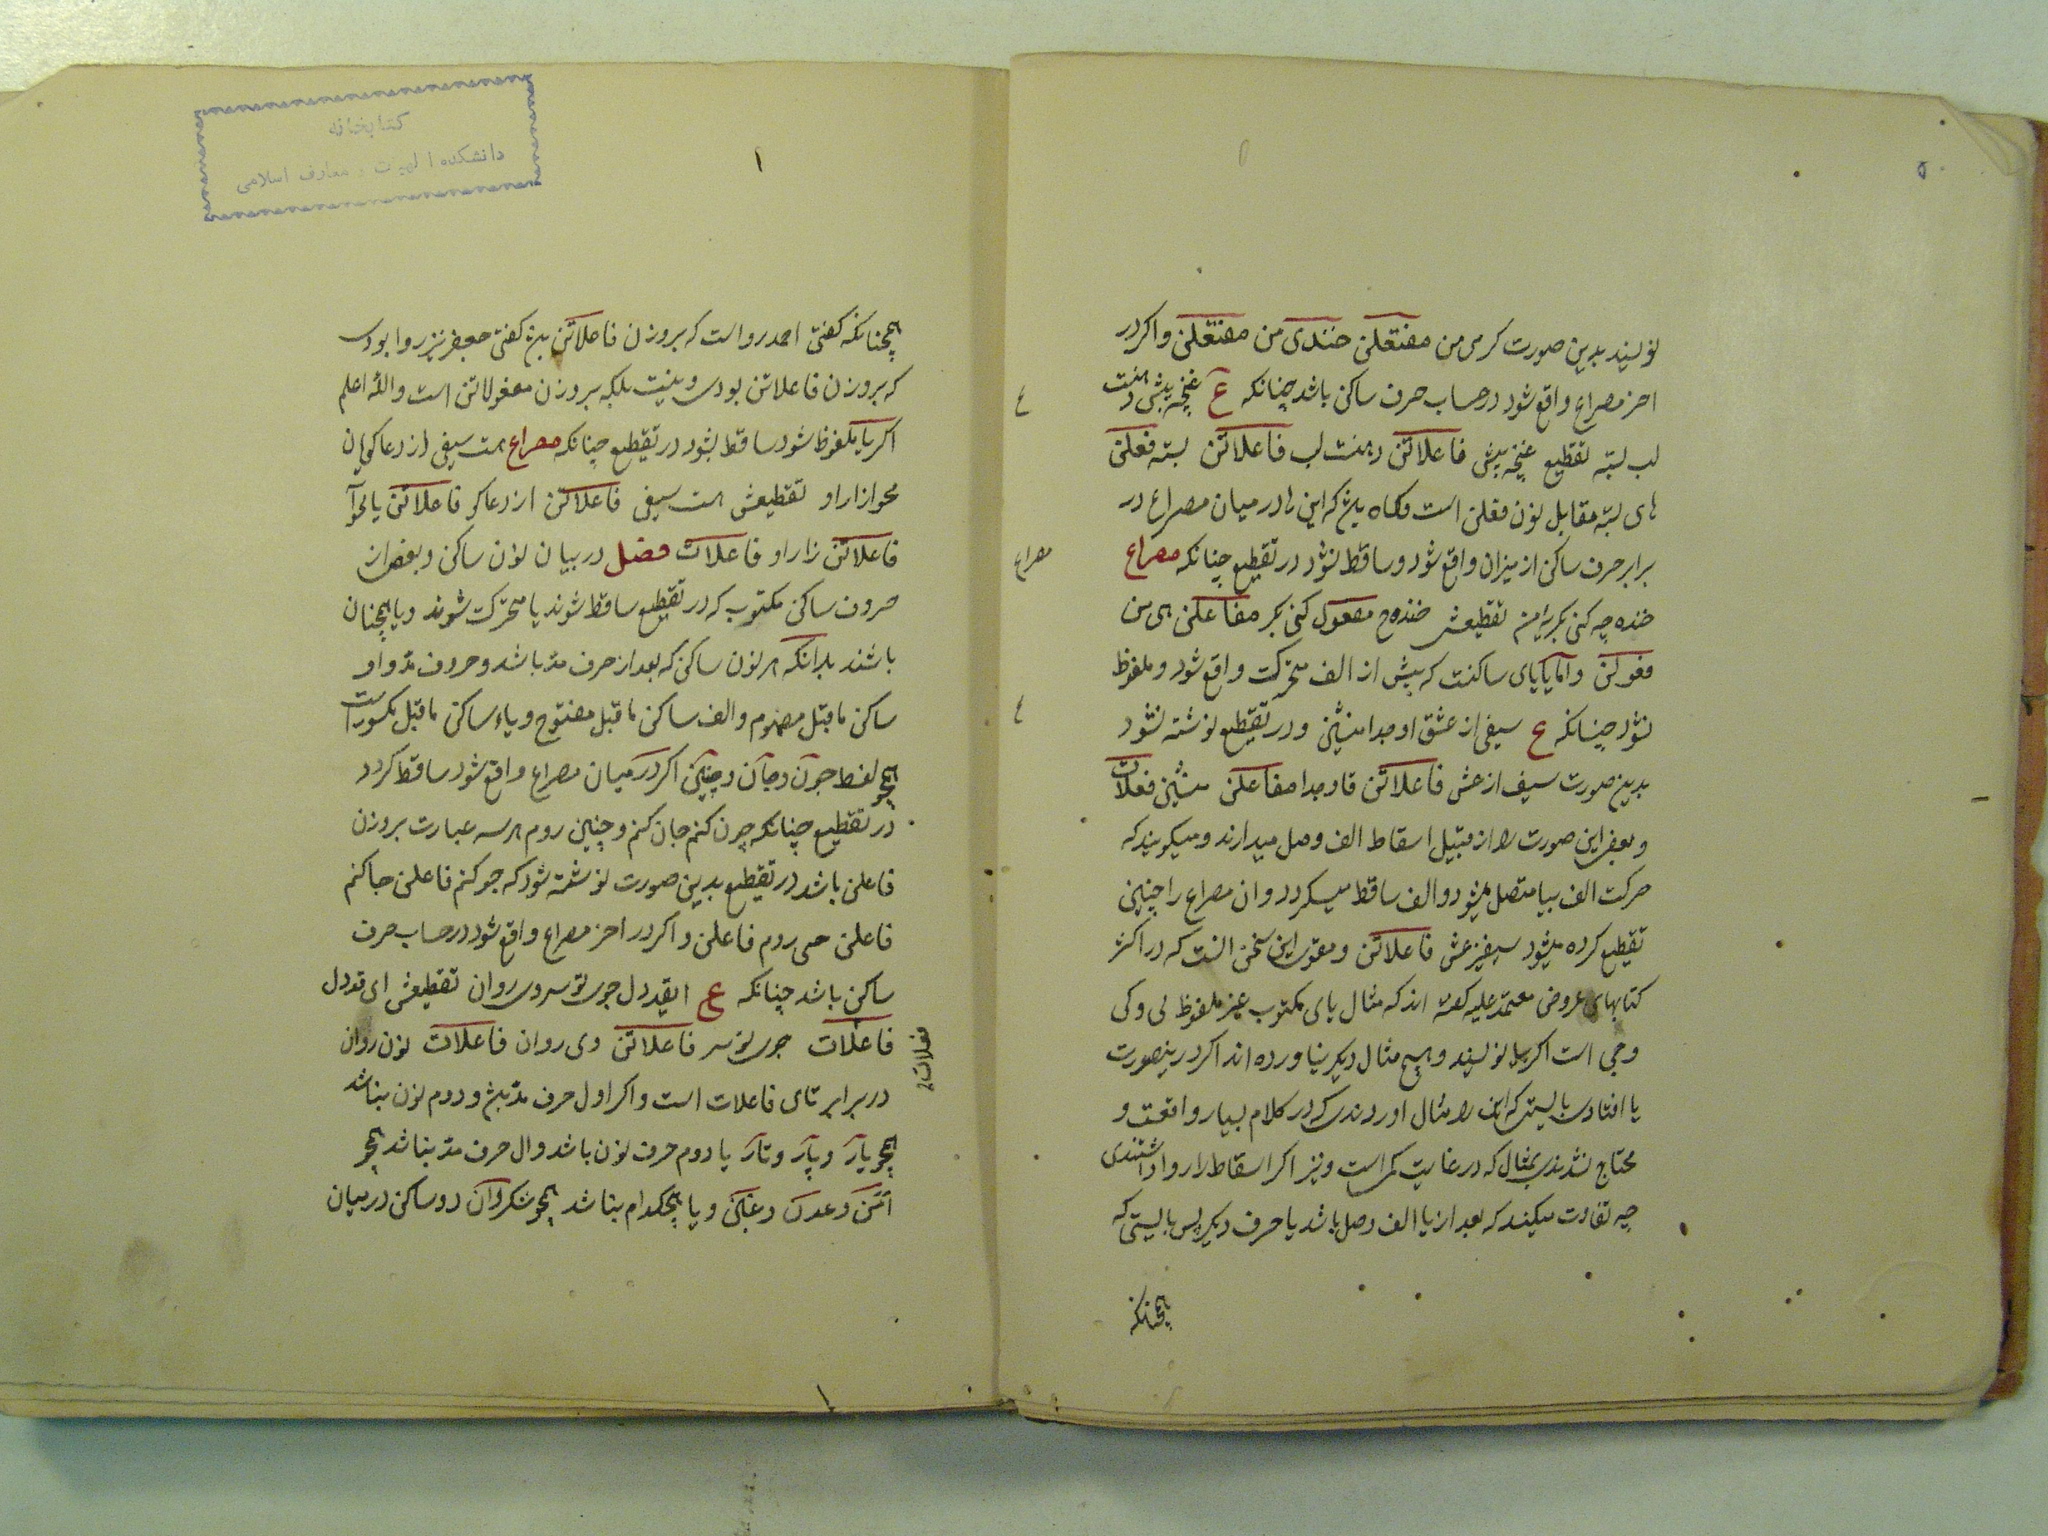 نویسند بدین صورت کرمی من مفتعلن خندی من مفتعلن واکر در
اخر مصراع واقع شود در حساب حرف ساکن باشد چنانکه ع غنچه پیش دهنت
لب بسته تقطیع غنچه پیش فاعلاتن دهنت لب فاعلاتن بسته فعلن
های بسته مقابل نون فعلن است وکاه باشد که این ها در میان مصراع در
برابر حرف ساکن از میزان واقع شود و ساقط نشود در تقطیع چنانکه مصراع
خنده چه کنی بکریه من تقطیعش خنده چ مفعول کنی بکر مفاعلن یهٔ من
فعولن واما یا یای ساکنت که پیش از الف متحرکت واقع شود و ملفوظ
نشود چنانکه ع سیفی از عشق او جدا منشین ودر تقطیع نوشته نشود
بدین صورت سیف از عش فاعلاتن ق او جدا مفاعلن منشین فعلات
و بعض این صورت را از قبیل اسقاط الف وصل میدارند و میکویند که
حرکت الف بیا متصل میشود و الف ساقط میکردد و ان مصراع را چنین
تقطیع کرده میشود سیفیز عش فاعلاتن و مقوی این سخن انست که در اکثر
کتابهای عروض معتمد علیه کفته اند که مثال یای مکتوب غیر ملفوظ بی و کی
و چی است اکر بیا نویسند و هیچ مثال دیکر نیاورده اند اکر درینصورت
یا افتادی بایستی که این را مثال اوردندی که در کلام بسیار واقعت و
محتاج نشدندی بمثال که در غایت کمی است و نیز اکر اسقاط را روا داشتندی
چه تفاوت میکند که بعد از یا الف وصل باشد یا حرف دیکر پس بایستی که
همچنانکه
ع
مصراع
ع
کتابخانه
دانشکده الهیات و معارف اسلامی
همچنانکه کفتی احمد رواست که بروزن فاعلاتن باشد کفتی جعفر نیز روا بودی
که بروزن فاعلاتن بودی و نیست بلکه بروزن مفعولاتن است والله اعلم
اکر یا ملفوظ شود ساقط نشود در تقطیع چنانکه مصراع هست سیفی از دعاکویان
محو ازار او تقطیعش هست سیفی فاعلاتن از دعا کو فاعلاتن یا نحوآ
فاعلاتن زار او فاعلات فصل در بیان نون ساکن و بعض از
حروف ساکن مکتوب که در تقطیع ساقط شوند یا متحرکت شوند و یا همچنان
باشند بدانکه هر نون ساکن که بعد از حرف مد باشد و حروف مد واو
ساکن ماقبل مضموم والف ساکن ماقبل مفتوح و یاء ساکن ماقبل مکسورست
همچو لفظ چون و جان و چنین اکر در میان مصراع واقع شود ساقط کردد
در تقطیع چنانکه چون کنم جان کنم و چنین روم هر سه عبارت بروزن
فاعلن باشد در تقطیع بدین صورت نوشته شود که جو کنم فاعلن جا کنم
فاعلن چی روم فاعلن و اکر در اخر مصراع واقع شود در حساب حرف
ساکن باشد چنانکه ع ایقد دل جوی تو سروی روان تقطیعش ای قد دل
فاعلات جوی تو سر فاعلاتن وی روان فاعلات نون روان
در برابر تای فاعلات است واکر اول حرف مد باشد و دوم نون نباشد
همچو یار و پار و تار یا دوم حرف نون باشد و ال حرف مد نباشد همچو
امن و عدن و غبن و یا هیچکدام نباشد همچو شکر وان دو ساکن در میان